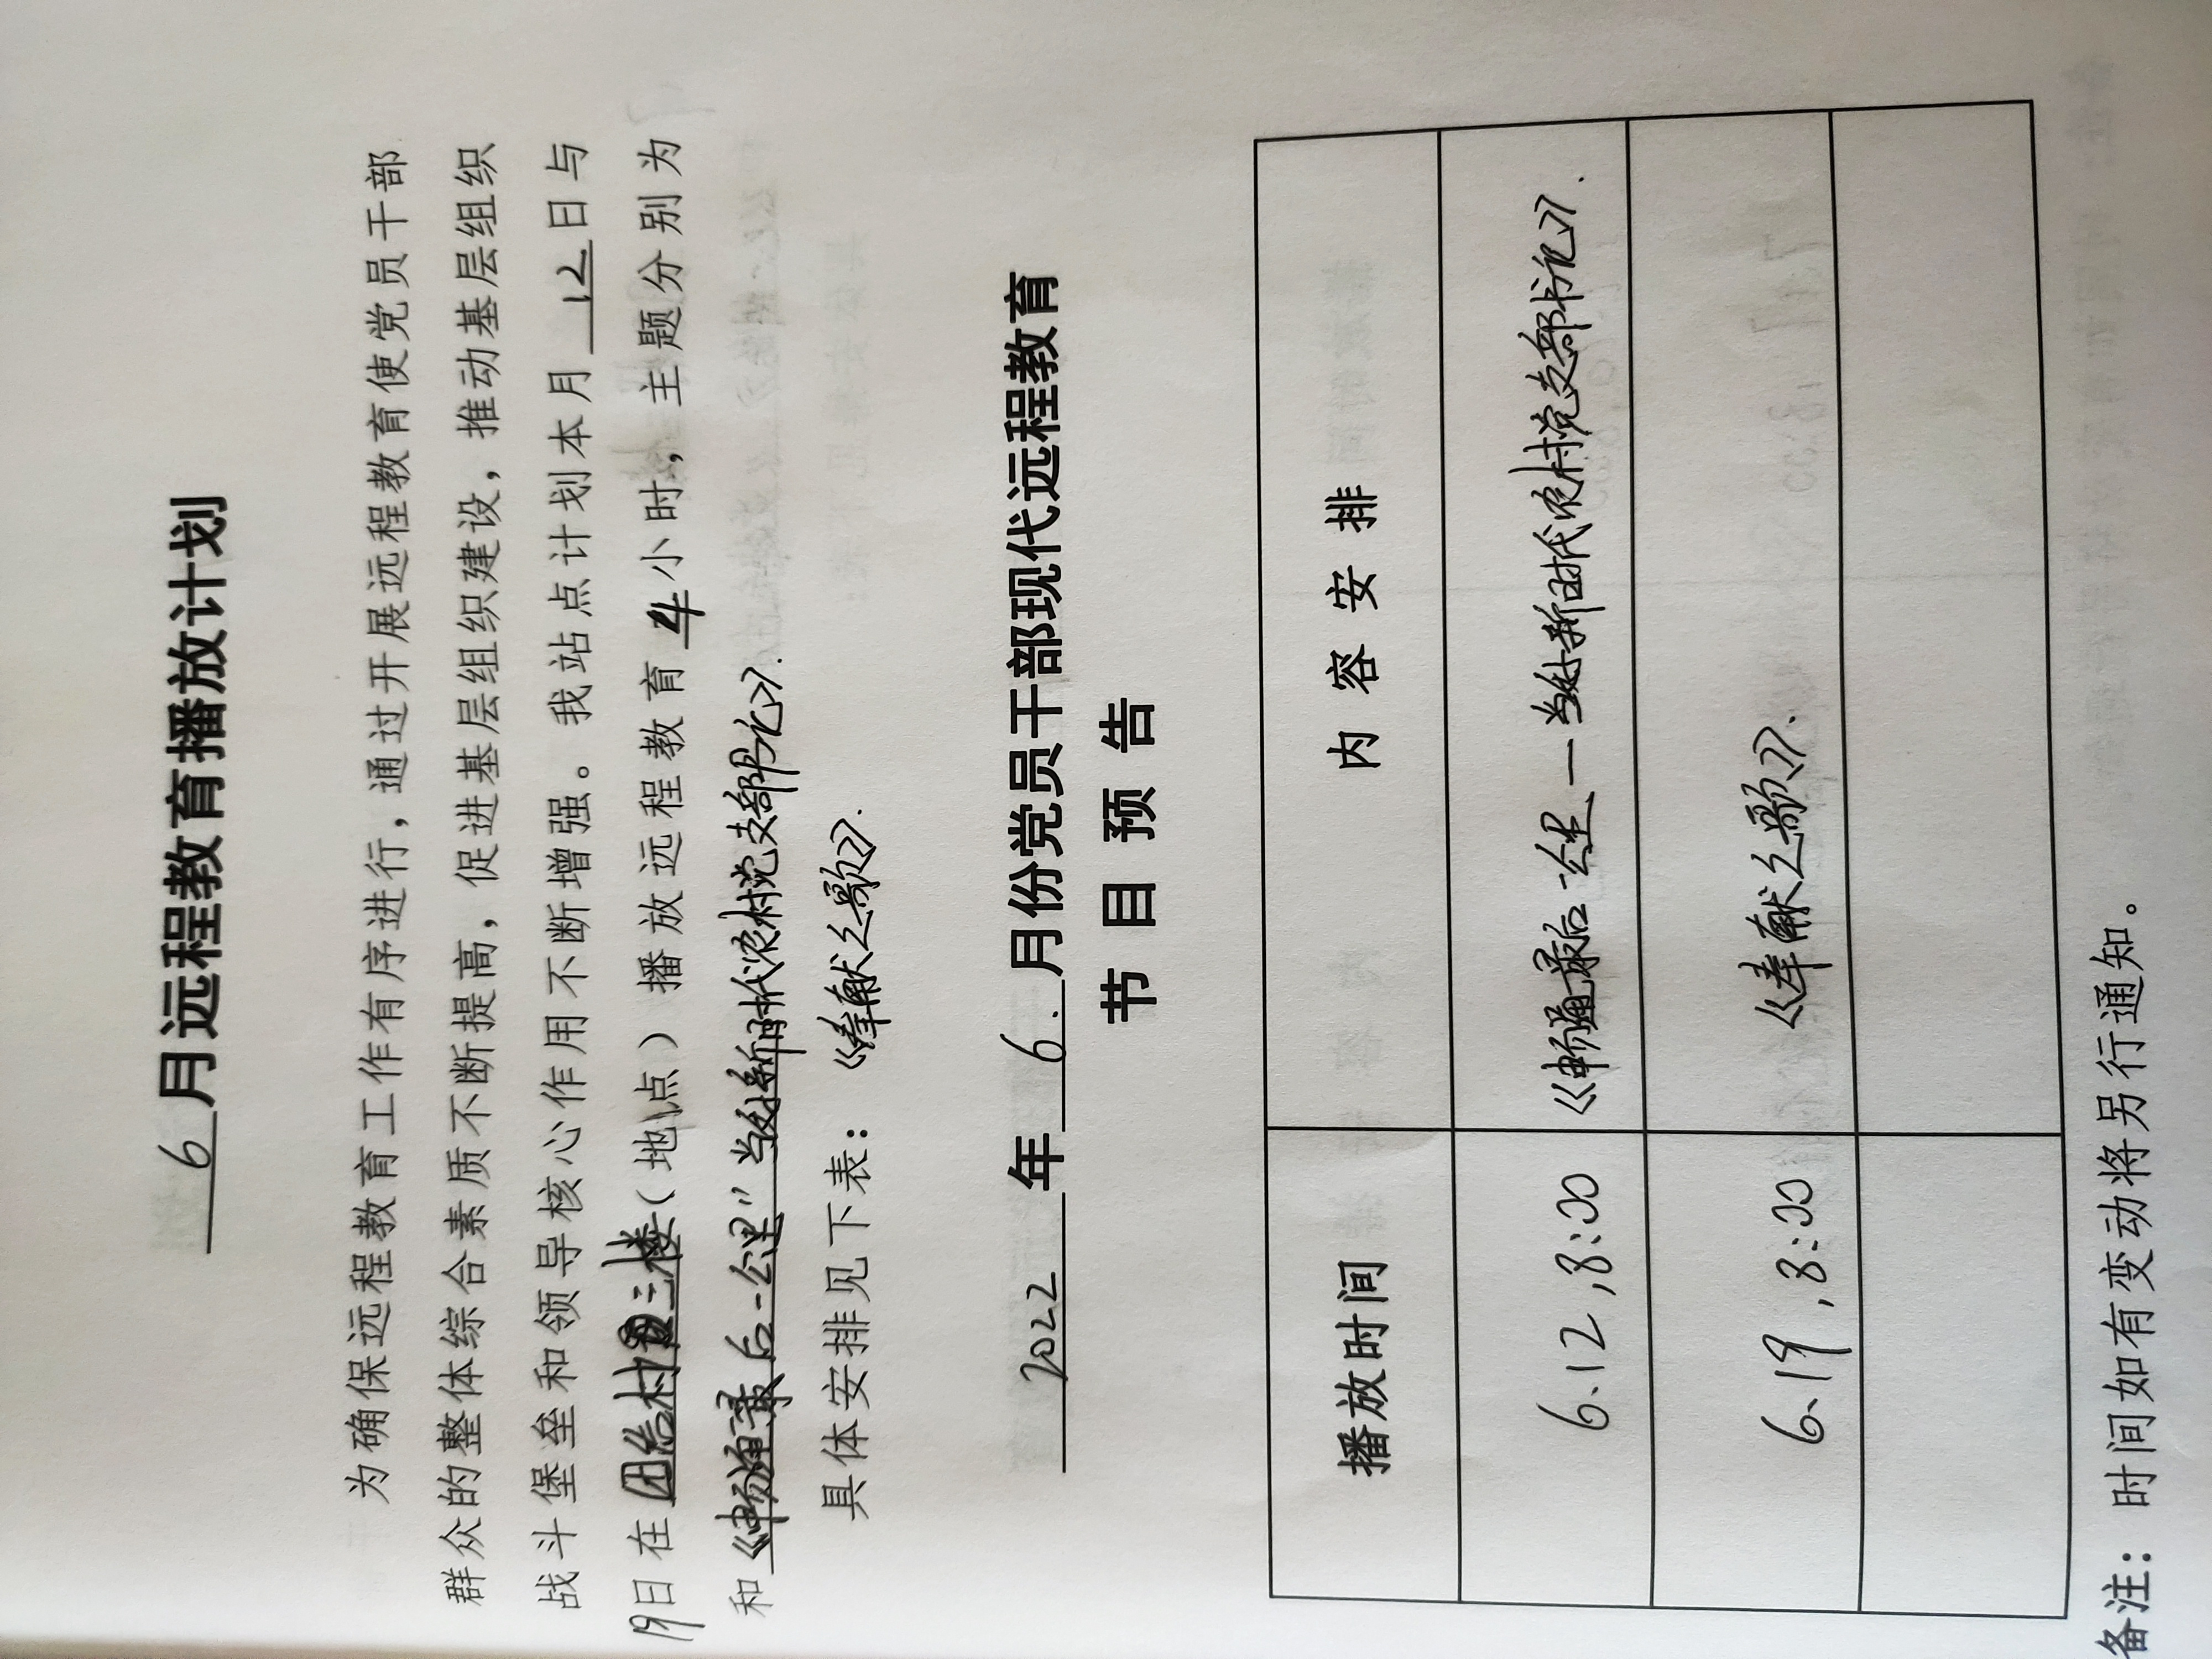 6月远程教育播放计划
为确保远程教育工作有序进行，通过开展远程教育使党员干部
群众的整体综合素质不断提高，促进基层组织建设，推动基层组织
战斗堡垒和领导核心作用不断增强。我站点计划本月 12 日与
19日在 团结村 三楼（地点）播放远程教育 4 小时，主题分别为
和《畅通最后一公里”当好新时代农村党支部书记》.
具体安排见下表： 《奉献之歌》.
2022 年 6. 月份党员干部现代远程教育
节目预告
播放时间 内容安排
6.12,8:00 《畅通最后一公里—当好新时代农村党支部书记》.
6.19,8:00 《奉献之歌》.
备注：时间如有变动将另行通知。